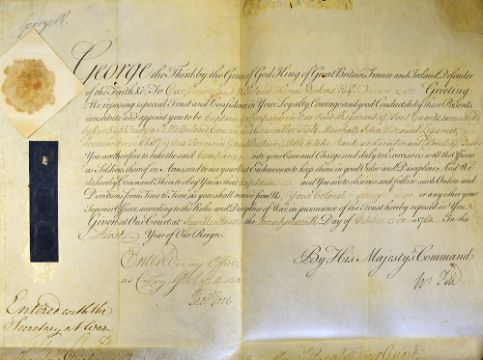 George R
George the Third by the Grace of God King of Great Britain France and Ireland Defender
of the Faith &c. To Our Trusty and Welbeloved Thomas Greeting
We reposing especial Trust and Confidence in Your Loyalty Courage and good Conduct do by these Presents
constitute and appoint you to be Captain of a Company in Our First Regiment of Foot Guards commanded
by Our Right Trusty and Welbeloved Cousin and Councellor Field Marshall John Viscount Ligonier,
Commander in Chief of Our Forces in Great Britain & to take Rank as Lieutenant Colonel of Foot
You are therefore to take the said Company into your Care and Charge and duly to exercise as well the Officers
as Soldiers thereof in Arms and to use your best Endeavours to keep them in good Order and Discipline And We
do hereby Command Them to Obey You as their Captain and You are to observe and follow such Orders and
Directions from Time to Time as you shall receive from Us your Colonel or any other your
Superior Officer according to the Rules and Discipline of War in pursuance of the Trust hereby reposed in You
Given at Our Court at Saville House the Day of October 1760 In the
First Year of Our Reign
By His Majesty's Command
W Pitt
Entered in my Office
Entered with the
Secretary at War